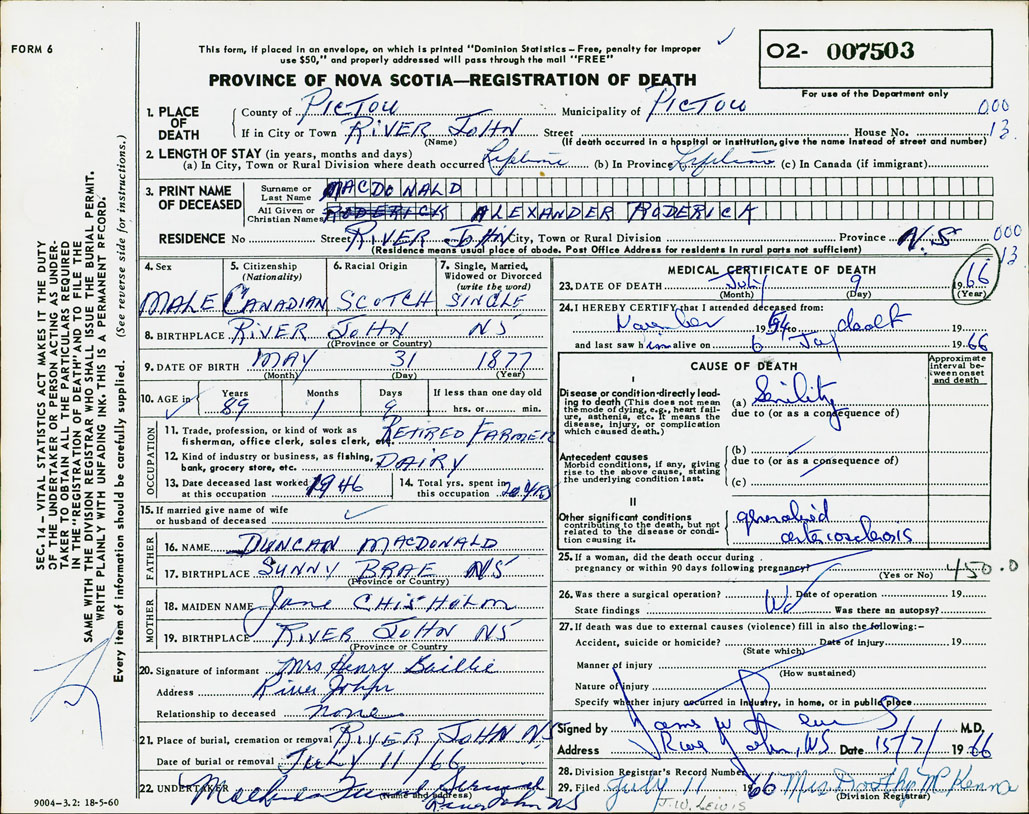 FORM 6
This form, if placed in an envelope, on which is printed "Dominion Statistics – Free, penalty for improper
use $50," and properly addressed will pass through the mail "FREE"
PROVINCE OF NOVA SCOTIA—REGISTRATION OF DEATH
O2- 007503
For use of the Department only
SEC. 14 – VITAL STATISTICS ACT MAKES IT THE DUTY
OF THE UNDERTAKER OR PERSON ACTING AS UNDER-
TAKER TO OBTAIN ALL THE PARTICULARS REQUIRED
IN THE "REGISTRATION OF DEATH" AND TO FILE THE
SAME WITH THE DIVISION REGISTRAR WHO SHALL ISSUE THE BURIAL PERMIT.
WRITE PLAINLY WITH UNFADING INK. THIS IS A PERMANENT RECORD.
Every item of information should be carefully supplied. (See reverse side for instructions.)
1. PLACE OF DEATH County of PICTOU Municipality of PICTOU 000
If in City or Town RIVER JOHN Street House No. 13
(Name) (If death occurred in a hospital or institution, give the name instead of street and number)
2. LENGTH OF STAY (in years, months and days)
(a) In City, Town or Rural Division where death occurred Lifetime (b) In Province Lifetime (c) In Canada (if immigrant)
3. PRINT NAME OF DECEASED Surname or Last Name MACDONALD
All Given or Christian Names RODERICK ALEXANDER RODERICK
RESIDENCE No Street RIVER JOHN City, Town or Rural Division Province N.S 000
(Residence means usual place of abode. Post Office Address for residents in rural parts not sufficient) 13
4. Sex MALE
5. Citizenship (Nationality) CANADIAN
6. Racial Origin SCOTCH
7. Single, Married, Widowed or Divorced (write the word) SINGLE
8. BIRTHPLACE RIVER JOHN NS
(Province or Country)
9. DATE OF BIRTH MAY 31 1877
(Month) (Day) (Year)
10. AGE in Years Months Days If less than one day old
89 1 9 hrs. or min.
OCCUPATION
11. Trade, profession, or kind of work as
fisherman, office clerk, sales clerk, etc. RETIRED FARMER
12. Kind of industry or business, as fishing,
bank, grocery store, etc. DAIRY
13. Date deceased last worked at this occupation 1946
14. Total yrs. spent in this occupation 20 YRS
15. If married give name of wife
or husband of deceased
FATHER
16. NAME DUNCAN MACDONALD
17. BIRTHPLACE SUNNY BRAE NS
(Province or Country)
MOTHER
18. MAIDEN NAME Jane CHISHOLM
19. BIRTHPLACE RIVER JOHN NS
(Province or Country)
20. Signature of informant Mrs Henry Baillie
Address River John
Relationship to deceased none
21. Place of burial, cremation or removal RIVER JOHN NS
Date of burial or removal JULY 11/66
22. UNDERTAKER Funeral
(Name and address) River John NS
9004–3.2: 18-5-60
MEDICAL CERTIFICATE OF DEATH
23. DATE OF DEATH July 9 1966
(Month) (Day) (Year)
24. I HEREBY CERTIFY that I attended deceased from:
November 1954 to death 19
and last saw him alive on 6 July 1966
CAUSE OF DEATH
Approximate interval between onset and death
I
Disease or condition directly lead-
ing to death (This does not mean
the mode of dying, e.g., heart fail-
ure, asthenia, etc. It means the
disease, injury, or complication
which caused death.)
(a) Senility
due to (or as a consequence of)
Antecedent causes
Morbid conditions, if any, giving
rise to the above cause, stating
the underlying condition last.
(b)
due to (or as a consequence of)
(c)
II
Other significant conditions
contributing to the death, but not
related to the disease or condi-
tion causing it
generalised
arteriosclerosis
25. If a woman, did the death occur during
pregnancy or within 90 days following pregnancy? 450.0
(Yes or No)
26. Was there a surgical operation? No Date of operation 19
State findings Was there an autopsy?
27. If death was due to external causes (violence) fill in also the following:–
Accident, suicide or homicide? Date of injury 19
(State which)
Manner of injury
(How sustained)
Nature of injury
Specify whether injury occurred in industry, in home, or in public place
Signed by James W Lewis M.D.
Address River John, NS Date 15/7/1966
28. Division Registrar's Record Number
29. Filed July 11 1966 Mrs Dorothy McKenna
(Division Registrar)
J.W. LEWIS